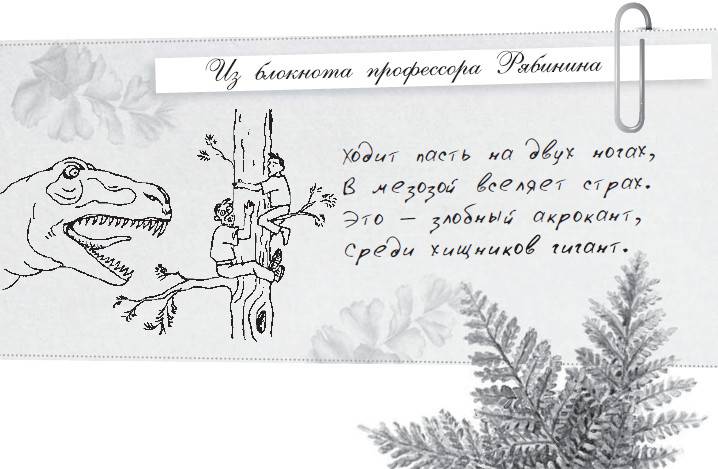 Из блокнота профессора Рябинина
Ходит пасть на двух ногах,
В мезозой вселяет страх.
Это — злобный акрокант,
Среди хищников гигант.